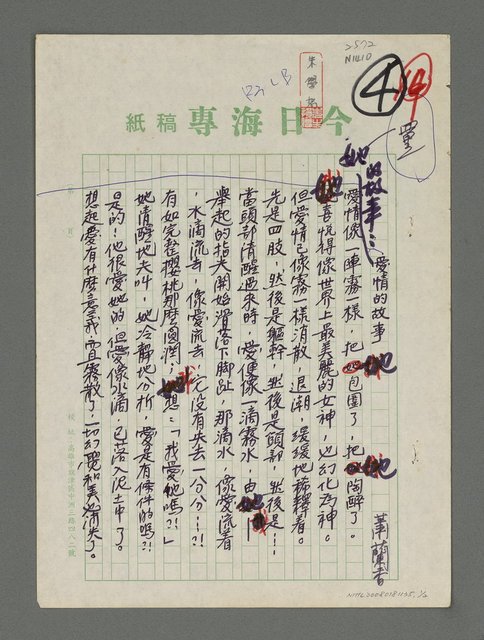 2572
N1110
④
朱學恕
今日海專稿紙
她的故事:
愛情的故事
葉蘭香
愛情像一陣霧一樣，把她包圍了，把她陶醉了。
她喜悅得像世界上最美麗的女神，也幻化為神。
但愛情已像霧一樣消散，退潮，緩緩地稀釋着。
先是四肢，然後是軀幹，然後是頭部，然後是…
當頭部清醒過來時，愛便像一滴霧水，由她
舉起的指尖開始滑落下腳趾，那滴水，像愛流着
，水滴流去，像愛流去，它沒有失去一分分…
有如完整櫻桃那麼圓潤，她想：「我愛他嗎?!」
她清醒地大叫，她冷靜地分析，愛是有條件的嗎?!
是的！他很愛她的，但愛像水滴，已落入泥土中了。
想起愛有什麼意義，霧散了，一切幻覺和美也消失了。
校址：高雄市旗津區中洲三路四八二號